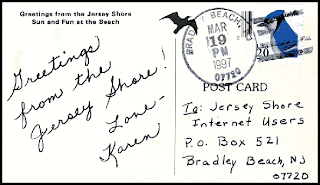 Greetings from the Jersey Shore
Sun and Fun at the Beach
Greetings
from the
Jersey Shore!
Love-
Karen
BRADLEY BEACH,
MAR
19
PM
1997
07720
USA
20
POST CARD
To: Jersey Shore
Internet Users
P.O. Box 521
Bradley Beach, NJ
07720